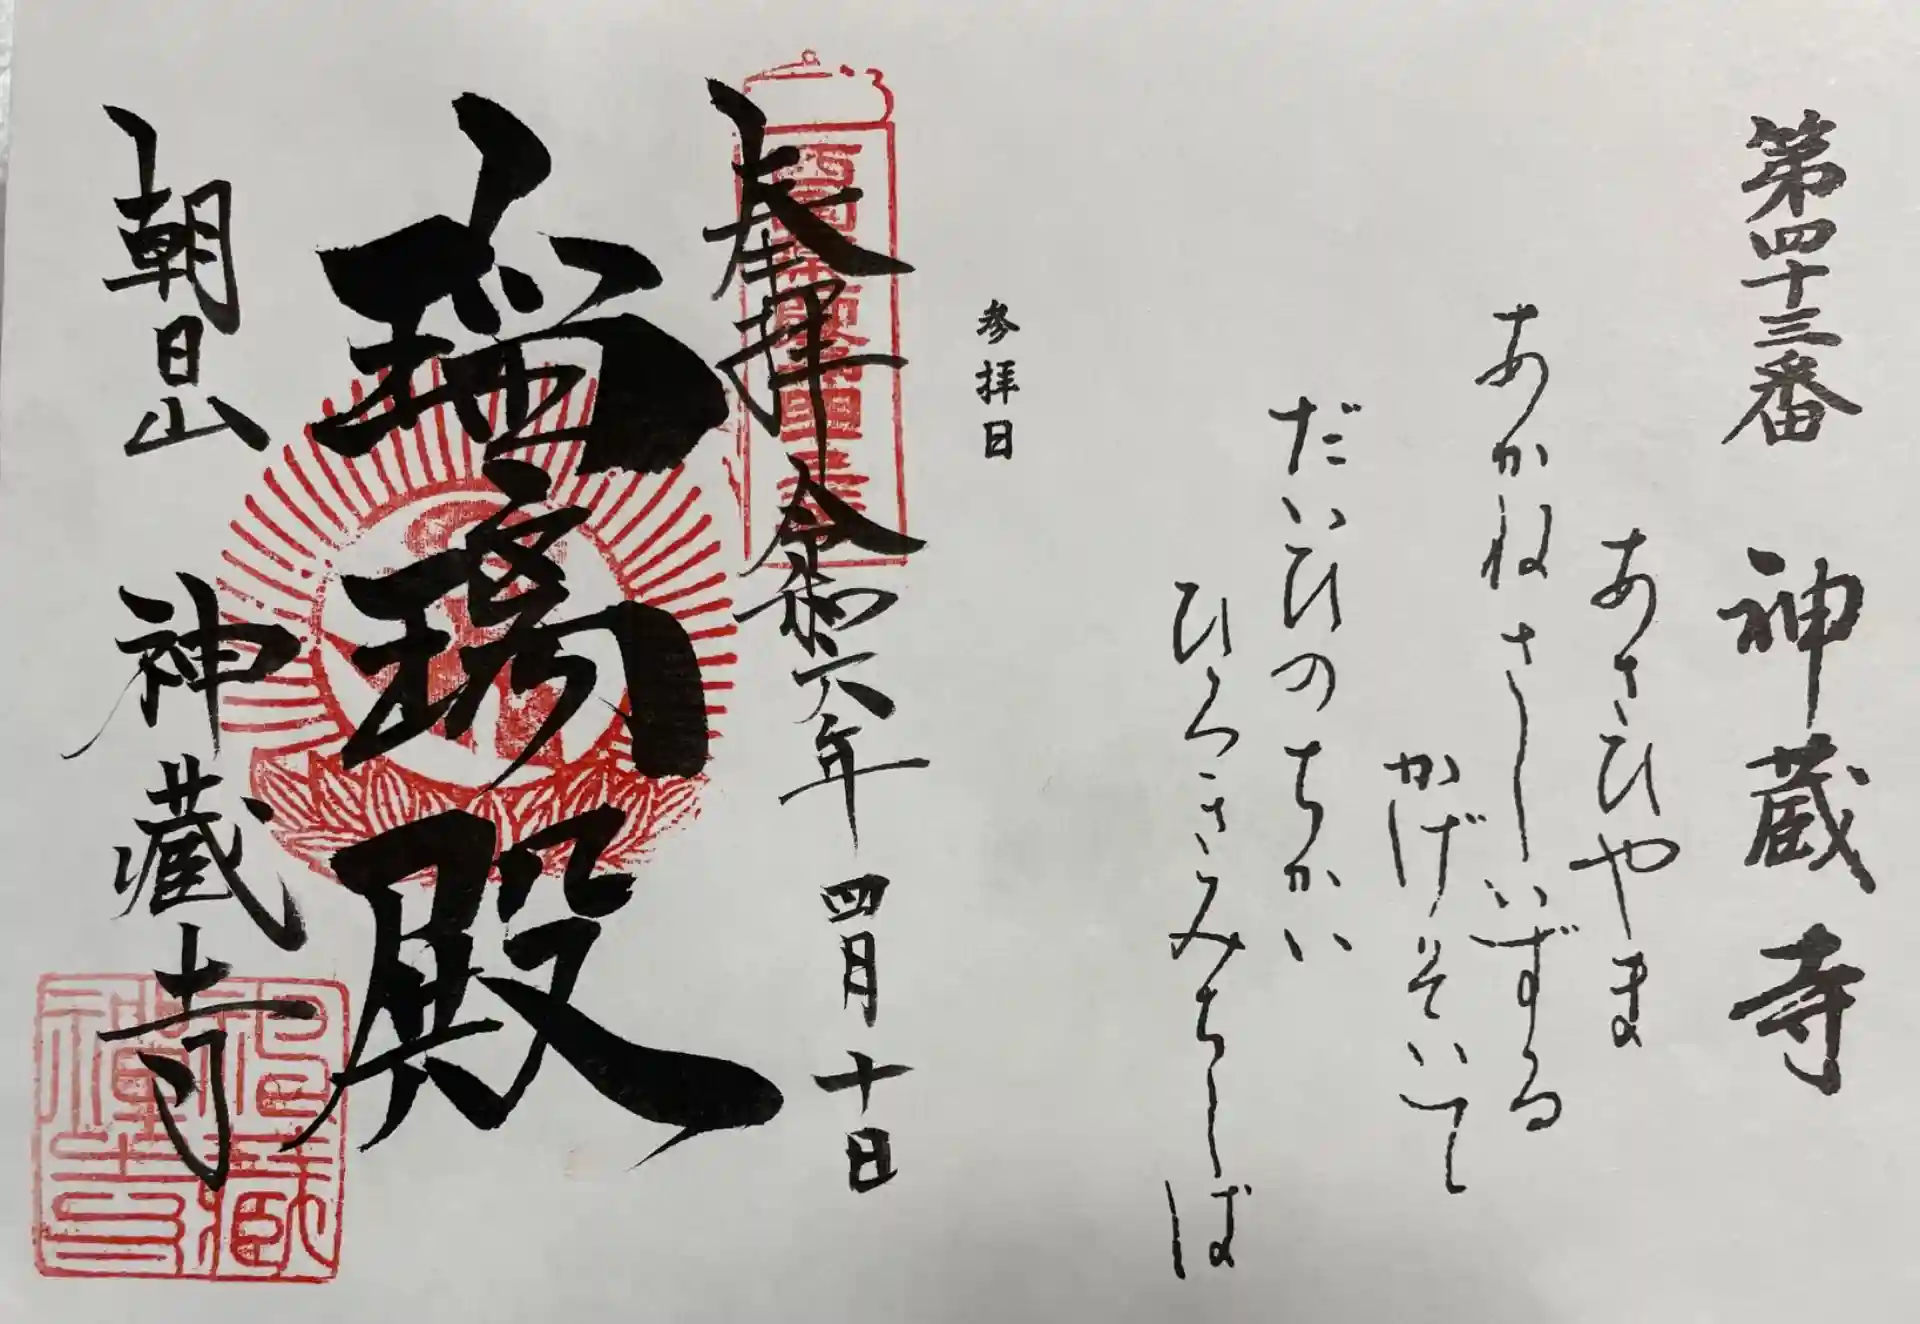 第四十三番 神蔵寺
あさひやま
あかねさしいずる
かげそいて
だいひのちかい
ひろきみちしば
参拝日
奉拝 令和六年 四月 十日
瑠璃殿
朝日山 神蔵寺
神藏禪寺